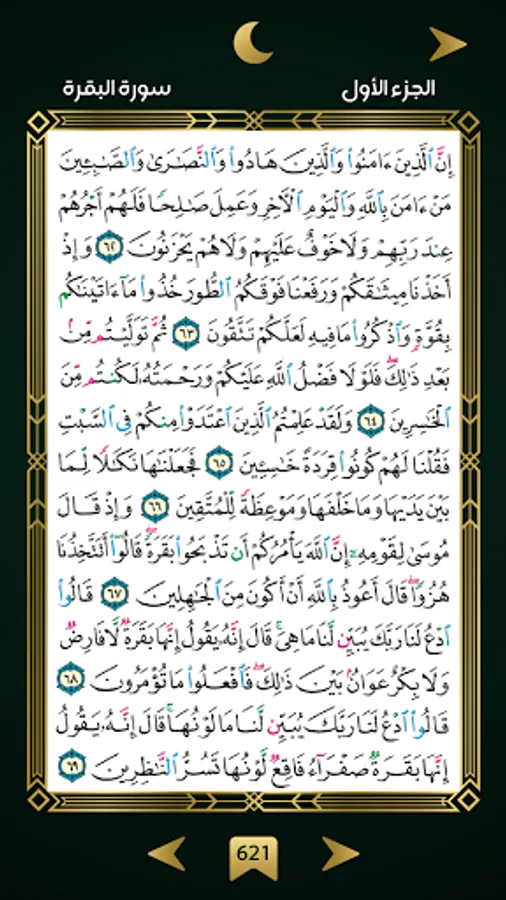 الجزء الأول
سورة البقرة
إِنَّ ٱلَّذِينَ ءَامَنُوا۟ وَٱلَّذِينَ هَادُوا۟ وَٱلنَّصَـٰرَىٰ وَٱلصَّـٰبِـِٔينَ
مَنْ ءَامَنَ بِٱللَّهِ وَٱلْيَوْمِ ٱلْـَٔاخِرِ وَعَمِلَ صَـٰلِحًا فَلَهُمْ أَجْرُهُمْ
عِندَ رَبِّهِمْ وَلَا خَوْفٌ عَلَيْهِمْ وَلَا هُمْ يَحْزَنُونَ ٦٢ وَإِذْ
أَخَذْنَا مِيثَـٰقَكُمْ وَرَفَعْنَا فَوْقَكُمُ ٱلطُّورَ خُذُوا۟ مَآ ءَاتَيْنَـٰكُم
بِقُوَّةٍ وَٱذْكُرُوا۟ مَا فِيهِ لَعَلَّكُمْ تَتَّقُونَ ٦٣ ثُمَّ تَوَلَّيْتُم مِّنۢ
بَعْدِ ذَٰلِكَ ۖ فَلَوْلَا فَضْلُ ٱللَّهِ عَلَيْكُمْ وَرَحْمَتُهُۥ لَكُنتُم مِّنَ
ٱلْخَـٰسِرِينَ ٦٤ وَلَقَدْ عَلِمْتُمُ ٱلَّذِينَ ٱعْتَدَوْا۟ مِنكُمْ فِى ٱلسَّبْتِ
فَقُلْنَا لَهُمْ كُونُوا۟ قِرَدَةً خَـٰسِـِٔينَ ٦٥ فَجَعَلْنَـٰهَا نَكَـٰلًا لِّمَا
بَيْنَ يَدَيْهَا وَمَا خَلْفَهَا وَمَوْعِظَةً لِّلْمُتَّقِينَ ٦٦ وَإِذْ قَالَ
مُوسَىٰ لِقَوْمِهِۦٓ إِنَّ ٱللَّهَ يَأْمُرُكُمْ أَن تَذْبَحُوا۟ بَقَرَةً ۖ قَالُوٓا۟ أَتَتَّخِذُنَا
هُزُوًا ۖ قَالَ أَعُوذُ بِٱللَّهِ أَنْ أَكُونَ مِنَ ٱلْجَـٰهِلِينَ ٦٧ قَالُوا۟
ٱدْعُ لَنَا رَبَّكَ يُبَيِّن لَّنَا مَا هِىَ ۚ قَالَ إِنَّهُۥ يَقُولُ إِنَّهَا بَقَرَةٌ لَّا فَارِضٌ
وَلَا بِكْرٌ عَوَانٌۢ بَيْنَ ذَٰلِكَ ۖ فَٱفْعَلُوا۟ مَا تُؤْمَرُونَ ٦٨
قَالُوا۟ ٱدْعُ لَنَا رَبَّكَ يُبَيِّن لَّنَا مَا لَوْنُهَا ۚ قَالَ إِنَّهُۥ يَقُولُ
إِنَّهَا بَقَرَةٌ صَفْرَآءُ فَاقِعٌ لَّوْنُهَا تَسُرُّ ٱلنَّـٰظِرِينَ ٦٩
621